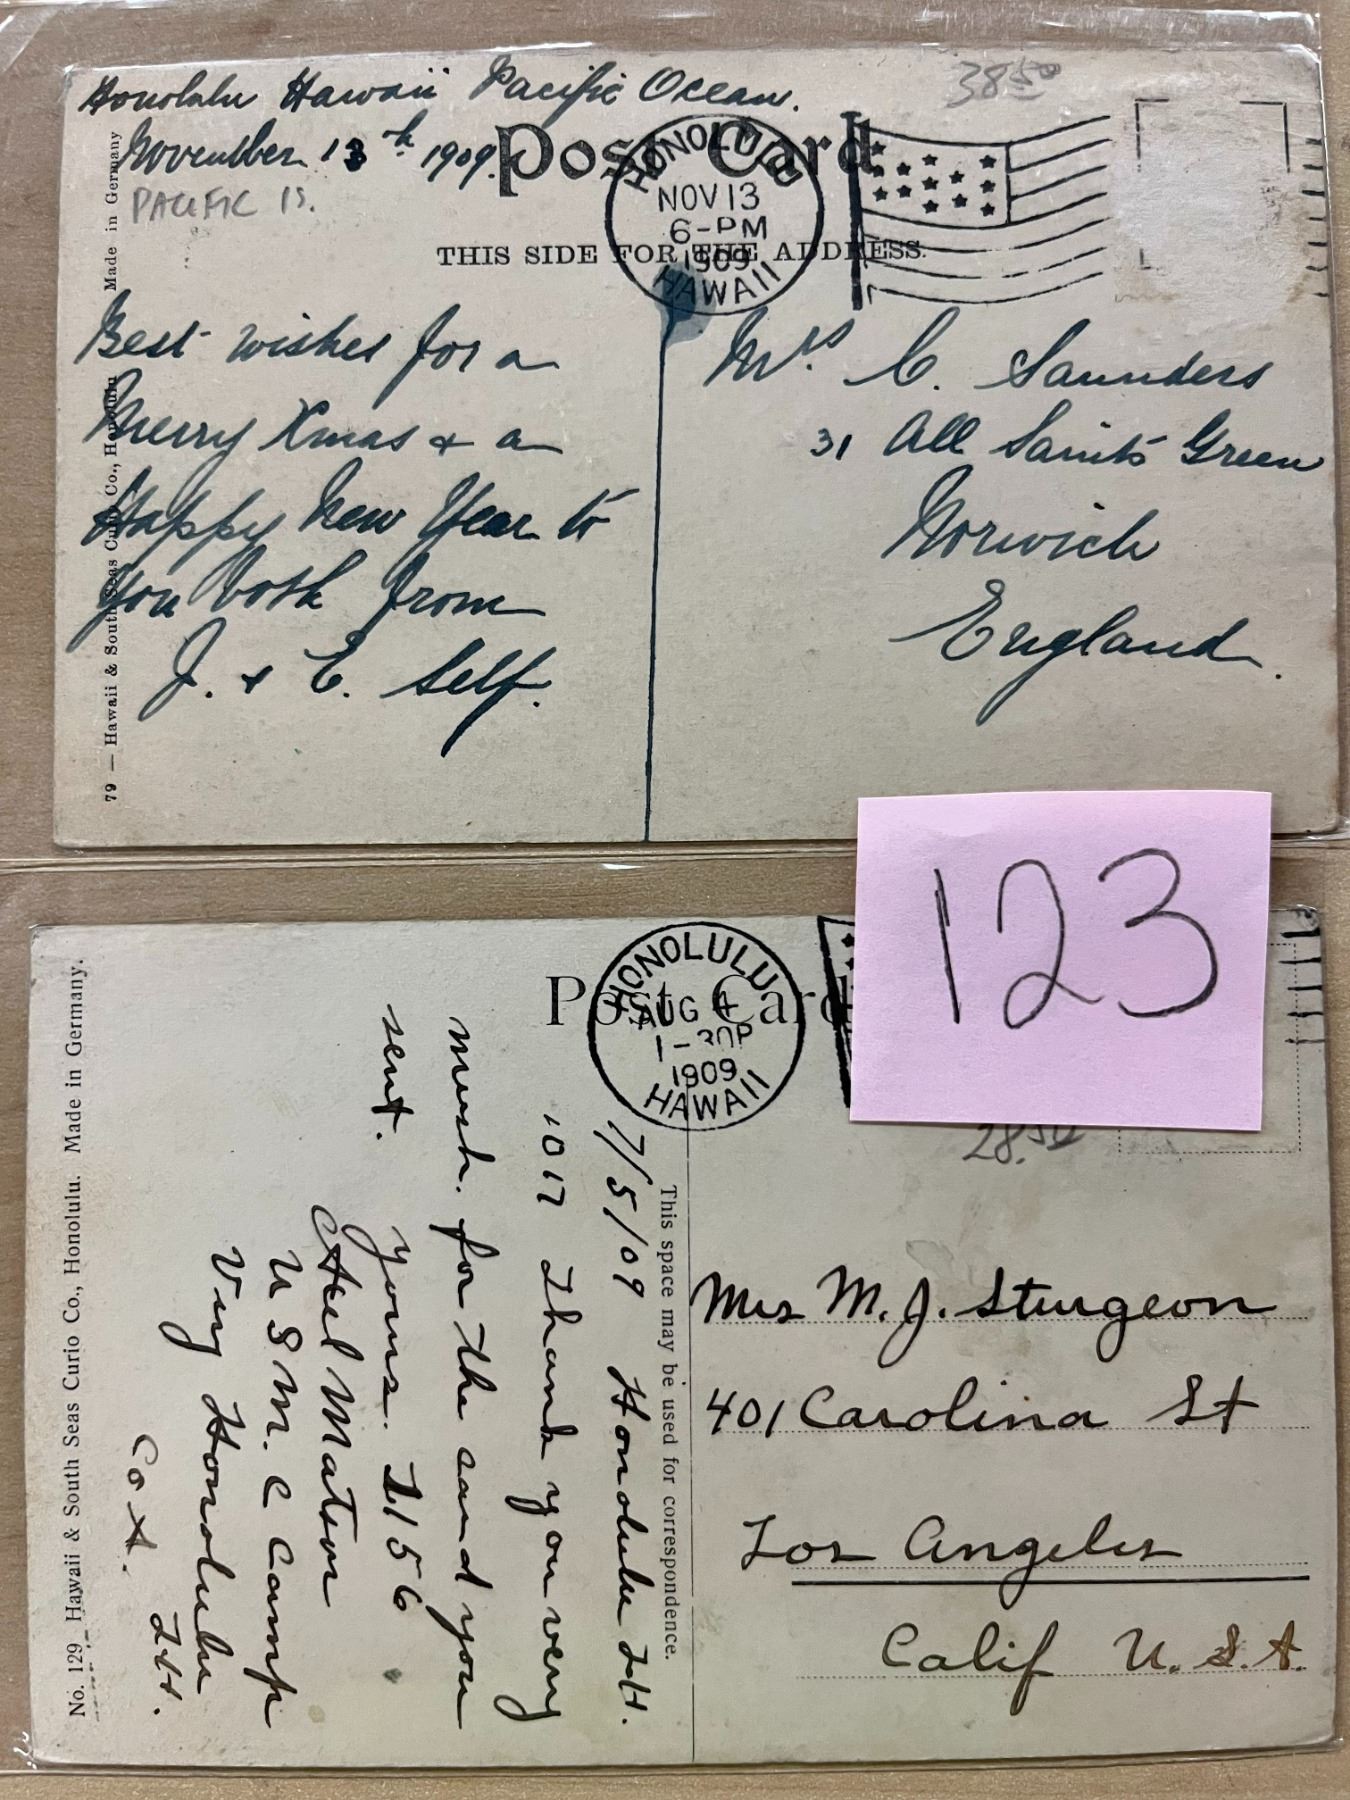 Honolulu Hawaii Pacific Ocean.
November 13th 1909.
PACIFIC IS.
38.50
Post Card
HONOLULU
NOV 13
6-PM
1909
HAWAII
THIS SIDE FOR THE ADDRESS.
Best wishes for a
Merry Xmas & a
Happy New Year to
you both from
J. & E. Self.
Mrs. C. Saunders
31 All Saints Green
Norwich
England.
79 — Hawaii & South Seas Curio Co., Honolulu Made in Germany
123
Post Card
HONOLULU
AUG 4
1-30P
1909
HAWAII
28.50
This space may be used for correspondence.
7/5/09 Honolulu I.H.
1017 Thank you very
much. for the card you
sent. yours. 1156
Matson
U S M. C Camp
Very Honolulu
Co A. I.H.
Mrs M. J. Sturgeon
401 Carolina St
Los Angeles
Calif U.S.A.
No. 129 Hawaii & South Seas Curio Co., Honolulu. Made in Germany.